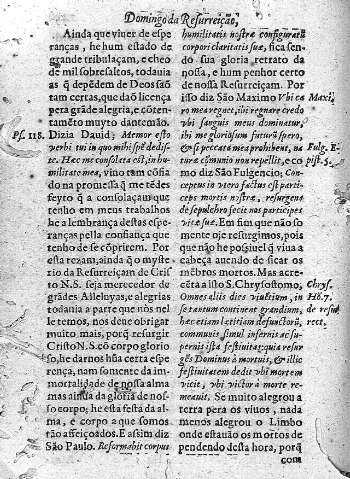 Domingo da Resurreição,
Ainda que viuer de espe-
ranças, he hum estado de
grande tribulaçam, e cheo
de mil sobresaltos, todauia
as q̃ depẽdem de Deos são
tam certas, que dão licença
pera grãde alegria, e cõten-
tamẽto muyto dantemão.
Ps. 118.
Dizia Dauid; Memor esto
verbi tui in quo mihi spẽ dedi-
ste. Hæc me consolata est, in hu-
militate mea, vino tam cõfia
do na promessa q̃ me tẽdes
feyto q̃ a consolaçam que
tenho em meus trabalhos
he a lembrança destas espe-
ranças pella confiança que
tenho de se cõprirem. Por
esta rezam, ainda q̃ o myste-
rio da Resurreiçam de Cris
to N.S. seja merecedor de
grãdes Alleluyas, e alegrias
todauia a parte que nòs nel
le temos, nos deue obrigar
muito mais, porq̃ resurgir
Cristo N.S. cõ corpo glorio
so, he darnos hũa certa espe
rença, nam somente da im-
mortalidade de nossa alma
mas ainda da gloria de nos-
so corpo; he esta festa da al-
ma, e corpo a que somos
tão affeiçoados. E assim diz
São Paulo. Reformabit corpus
humilitatis nostræ configuratũ
corpori claritatis suæ, fica sen-
do sua gloria retrato da
nossa, e hum penhor certo
de nossa Resurreiçam. Por
isso diz São Maximo Vbi ca
Maxi.
ro mea regnat, ibi regnare credo
vbi sanguis meus dominatur,
ibi me gloriosum futurũ spero,
& si peccata mea prohibent, na
turæ cõmunio non repellit, e co
Fulg. E
pist. 5.
mo diz São Fulgencio; Con-
ceptus in vtero factus est parti-
ceps mortis nostræ, resurgens
de sepulchro fecit nos participes
vitæ suæ. Em fim que não so
mente oje resurgimos, pois
que não he possiuel q̃ viua a
cabeça auendo de ficar os
mẽbros mortos. Mas acres-
cẽta a isto S. Chrysostomo,
Chrys.
Omnes alijs dies
se tantum continent grandium,
hæc etiam lætitiam defunctorũ,
communis simul infernis ac su-
pernis ista festiuitas: quia resur
gens Dominus à mortuis, & illic
festiuitatem dedit vbi mortem
vicit, vbi victor à morte re-
meauit. Se muito alegrou a
terra pera os viuos, nada
menos alegrou o Limbo
onde estauão os mortos de
pendendo desta hora, porq̃
com